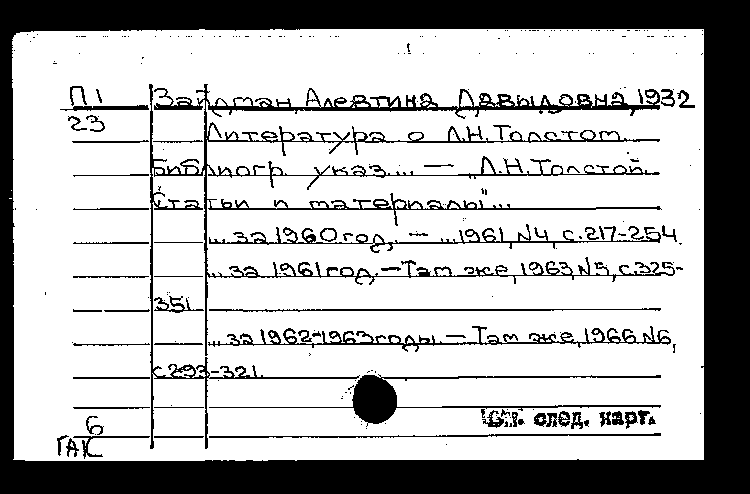 П1 Зайдман, Алевтина Давыдовна, 1932
23 Литература о Л.Н.Толстом.
Библиогр. указ... — „Л.Н.Толстой.
Статьи и материалы"...
...за 1960 год, — ...1961, №4, с.217-254.
...за 1961 год. — Там же, 1963, №5, с.325-
351.
...за 1962-1963 годы. — Там же, 1966 №6,
с.293-321.
См. след. карт.
6
ГАК